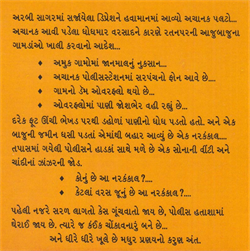 અરબી સાગરમાં સર્જાયેલા ડિપ્રેશને હવામાનમાં આવ્યો અચાનક પલટો...
અચાનક આવી પડેલા ધોધમાર વરસાદને કારણે રતનપરની આજુબાજુના
ગામડાંઓ ખાલી કરવાનો આદેશ...
♦ અમુક ગામોમાં જાનમાલનું નુકસાન...
♦ અચાનક પોલીસસ્ટેશનમાં સરપંચનો ફોન આવે છે....
♦ ગામનો ડૅમ ઓવરફ્લો થયો છે...
♦ ઓવરફ્લોમાં પાણી જોશભેર વહી રહ્યું છે...
દરેક ફૂટ ઊંચી ભેખડ પરથી ડહોળાં પાણીનો ધોધ પડતો હતો. અને એક
બાજુની જમીન ધસી પડતાં એમાંથી બહાર આવ્યું છે એક નરકંકાલ....
તપાસમાં ગયેલી પોલીસને હાડકાં સાથે મળે છે એક સોનાની વીંટી અને
ચાંદીનાં ઝાંઝરની જોડ.
♦ કોનું છે આ નરકંકાલ?....
♦ કેટલાં વરસ જૂનું છે આ નરકંકાલ?....
પહેલી નજરે સરળ લાગતો કેસ ગૂંચવાતો જાય છે, પોલીસ હતાશામાં
ઘેરાઈ જાય છે. ત્યારે જ કંઈક ચોંકાવનારું બને છે...
અને ધીરે ધીરે ખૂલે છે મધુર પ્રણયનો કરુણ અંત.